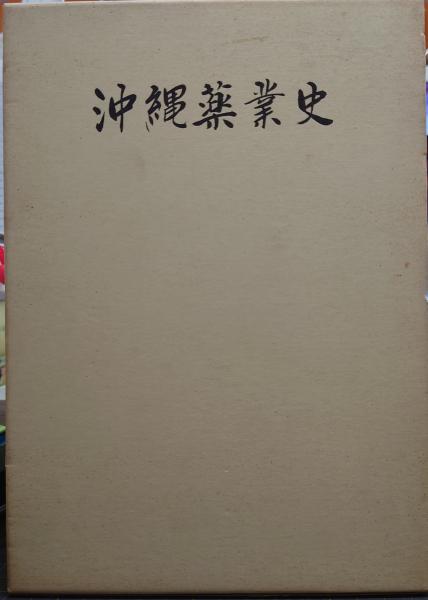 沖縄薬業史